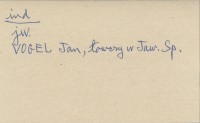 ind
jw.
VOGEL Jan, towarz w Jaw. Sp.